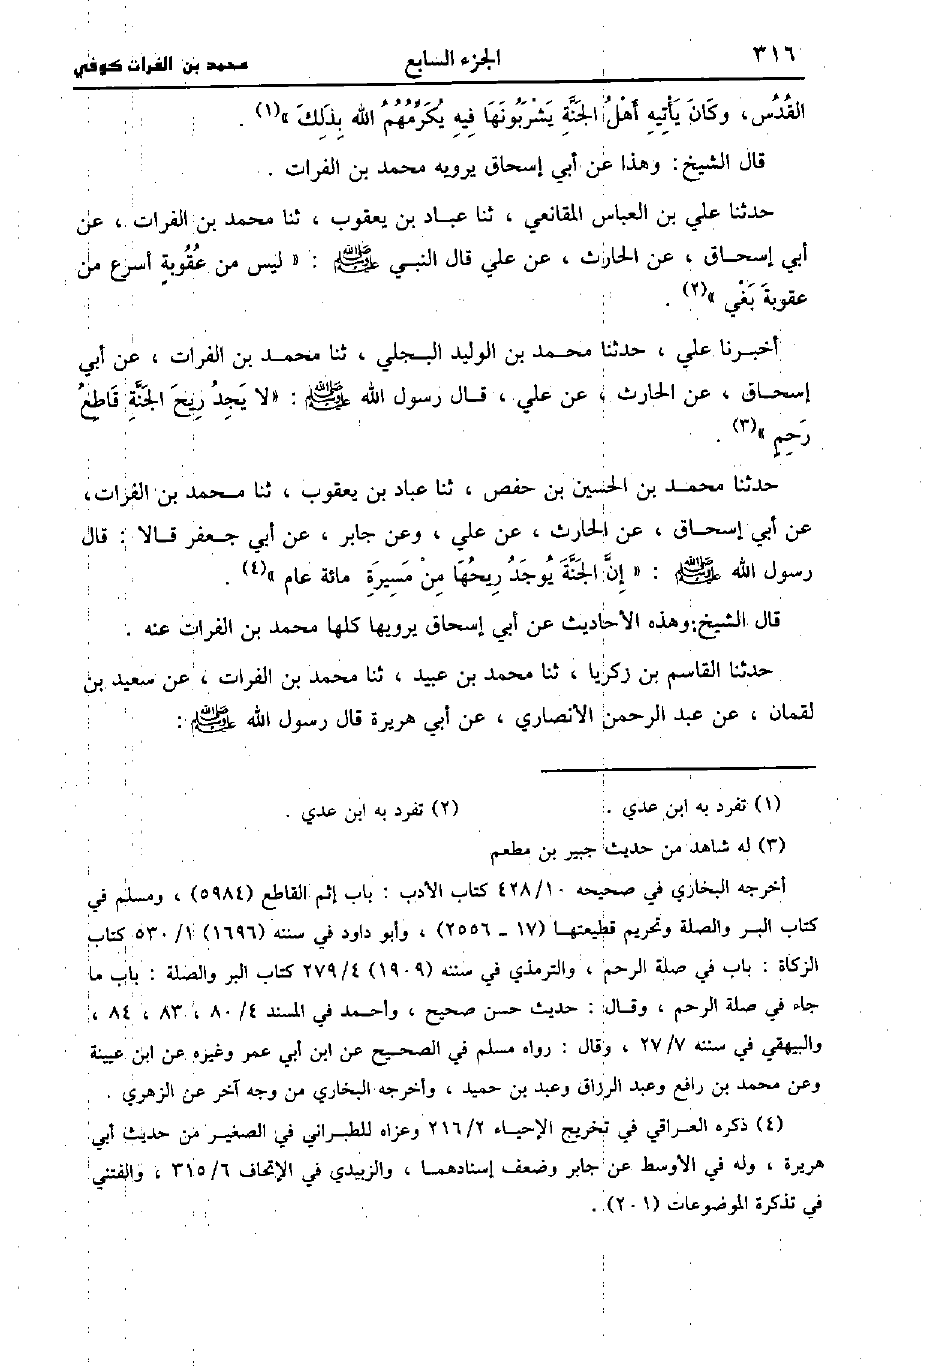 ٣١٦ الجزء السابع محمد بن الفرات كوفي
القُدُس ، وكَانَ يَأتِيهِ أَهْلُ الجَنَّةِ يَشْرَبُونَهَا فِيهِ يُكَرِّمُهُمُ الله بِذَلِكَ »(١) .
قال الشيخ : وهذا عن أبي إسحاق يرويه محمد بن الفرات .
حدثنا علي بن العباس المقانعي ، ثنا عباد بن يعقوب ، ثنا محمد بن الفرات ، عن
أبي إسحاق ، عن الحارث ، عن علي قال النبي ﷺ : « ليس من عُقُوبةٍ أسرع من
عقوبةَ بَغْي »(٢) .
أخبرنا علي ، حدثنا محمد بن الوليد البجلي ، ثنا محمد بن الفرات ، عن أبي
إسحاق ، عن الحارث ، عن علي ، قال رسول الله ﷺ : «لا يَجِدُ رِيحَ الجَنَّةِ قَاطِعُ
رَحِمٍ »(٣) .
حدثنا محمد بن الحسين بن حفص ، ثنا عباد بن يعقوب ، ثنا محمد بن الفرات،
عن أبي إسحاق ، عن الحارث ، عن علي ، وعن جابر ، عن أبي جعفر قالا : قال
رسول الله ﷺ : « إِنَّ الجَنَّةَ يُوجَدُ رِيحُهَا مِنْ مَسِيرَةِ مائة عام »(٤) .
قال الشيخ:وهذه الأحاديث عن أبي إسحاق يرويها كلها محمد بن الفرات عنه .
حدثنا القاسم بن زكريا ، ثنا محمد بن عبيد ، ثنا محمد بن الفرات ، عن سعيد بن
لقمان ، عن عبد الرحمن الأنصاري ، عن أبي هريرة قال رسول الله ﷺ :
(١) تفرد به ابن عدي . (٢) تفرد به ابن عدي .
(٣) له شاهد من حديث جبير بن مطعم
أخرجه البخاري في صحيحه ٤٢٨/١٠ كتاب الأدب : باب إثم القاطع (٥٩٨٤) ، ومسلم في
كتاب البر والصلة وتحريم قطيعتها (١٧ - ٢٥٥٦) ، وأبو داود في سننه (١٦٩٦) ٥٣٠/١ كتاب
الزكاة : باب في صلة الرحم ، والترمذي في سننه (١٩٠٩) ٢٧٩/٤ كتاب البر والصلة : باب ما
جاء في صلة الرحم ، وقال : حديث حسن صحيح ، وأحمد في المسند ٨٠/٤ ، ٨٣ ، ٨٤ ،
والبيهقي في سننه ٢٧/٧ ، وقال : رواه مسلم في الصحيح عن ابن أبي عمر وغيره عن ابن عيينة
وعن محمد بن رافع وعبد الرزاق وعبد بن حميد ، وأخرجه البخاري من وجه آخر عن الزهري .
(٤) ذكره العراقي في تخريج الإحياء ٢١٦/٢ وعزاه للطبراني في الصغير من حديث أبي
هريرة ، وله في الأوسط عن جابر وضعف إسنادهما ، والزبيدي في الإتحاف ٣١٥/٦ ، والفتني
في تذكرة الموضوعات (٢٠١) .